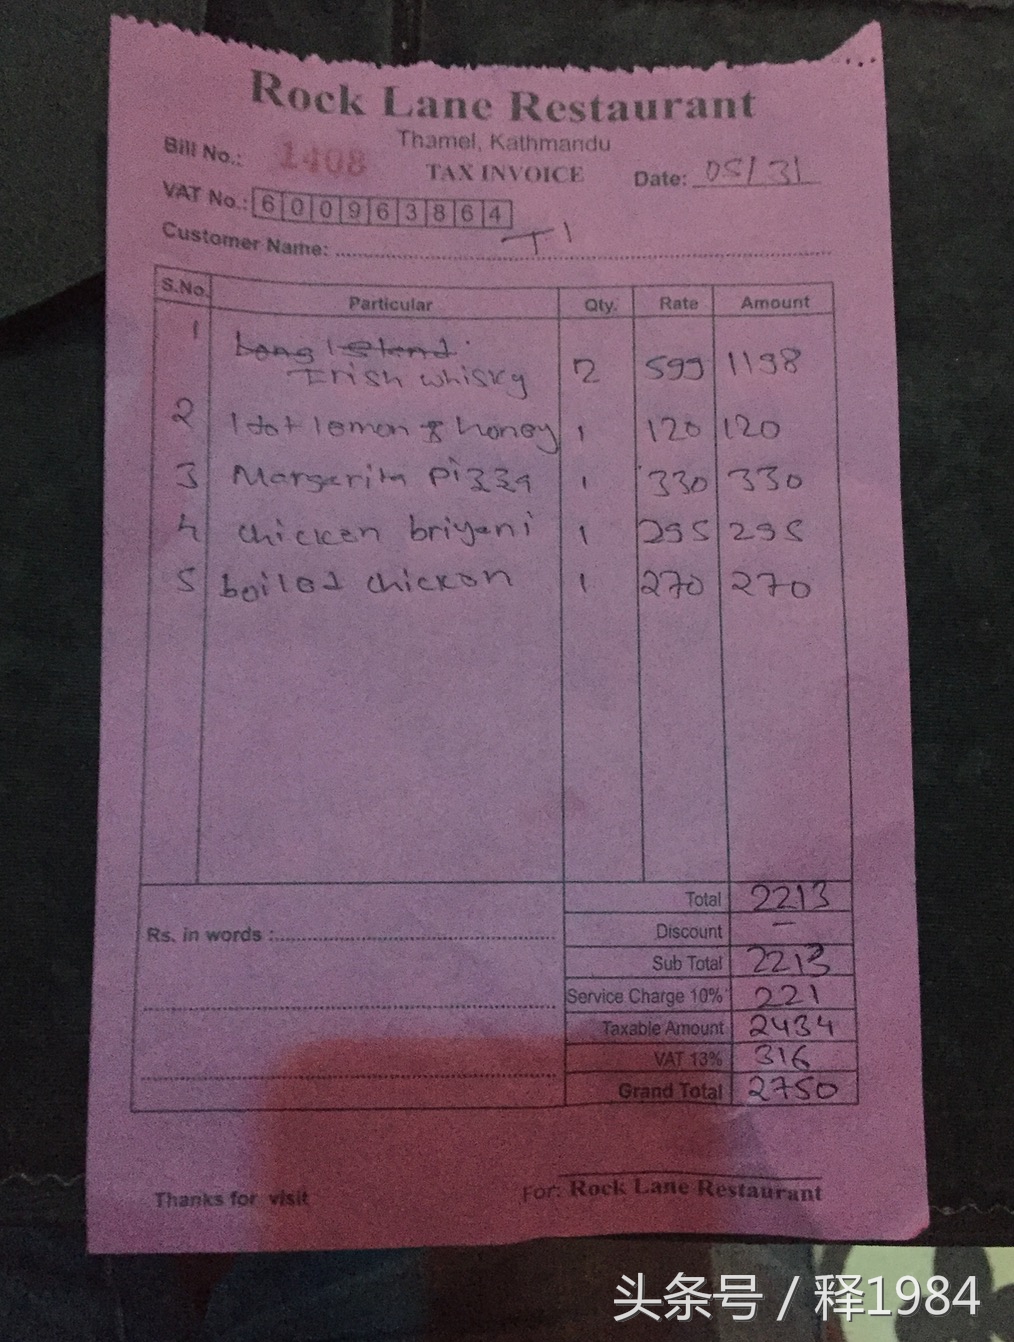 Rock Lane Restaurant
Thamel, Kathmandu
Bill No.: 1408
TAX INVOICE
Date: 05/31
VAT No.: 600963864
Customer Name: T1
S.No. Particular Qty. Rate Amount
1 Long Island
Irish whisky 2 599 1198
2 Hot lemon & honey 1 120 120
3 Margerita Pizza 1 330 330
4 chicken briyani 1 295 295
5 boiled chicken 1 270 270
Total 2213
Rs. in words : Discount —
Sub Total 2213
Service Charge 10% 221
Taxable Amount 2434
VAT 13% 316
Grand Total 2750
Thanks for visit
For: Rock Lane Restaurant
头条号 / 释1984